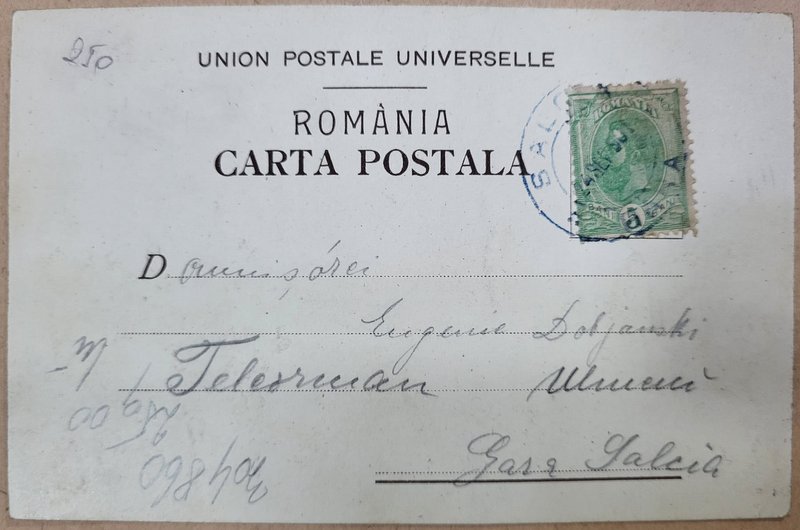 250
UNION POSTALE UNIVERSELLE
ROMÀNIA
CARTA POSTALA
ROMANIA
5
BANI
SALCIA
Domnișórei
Eugenie Dobjanski
Teleorman
Gara Salcia
204860